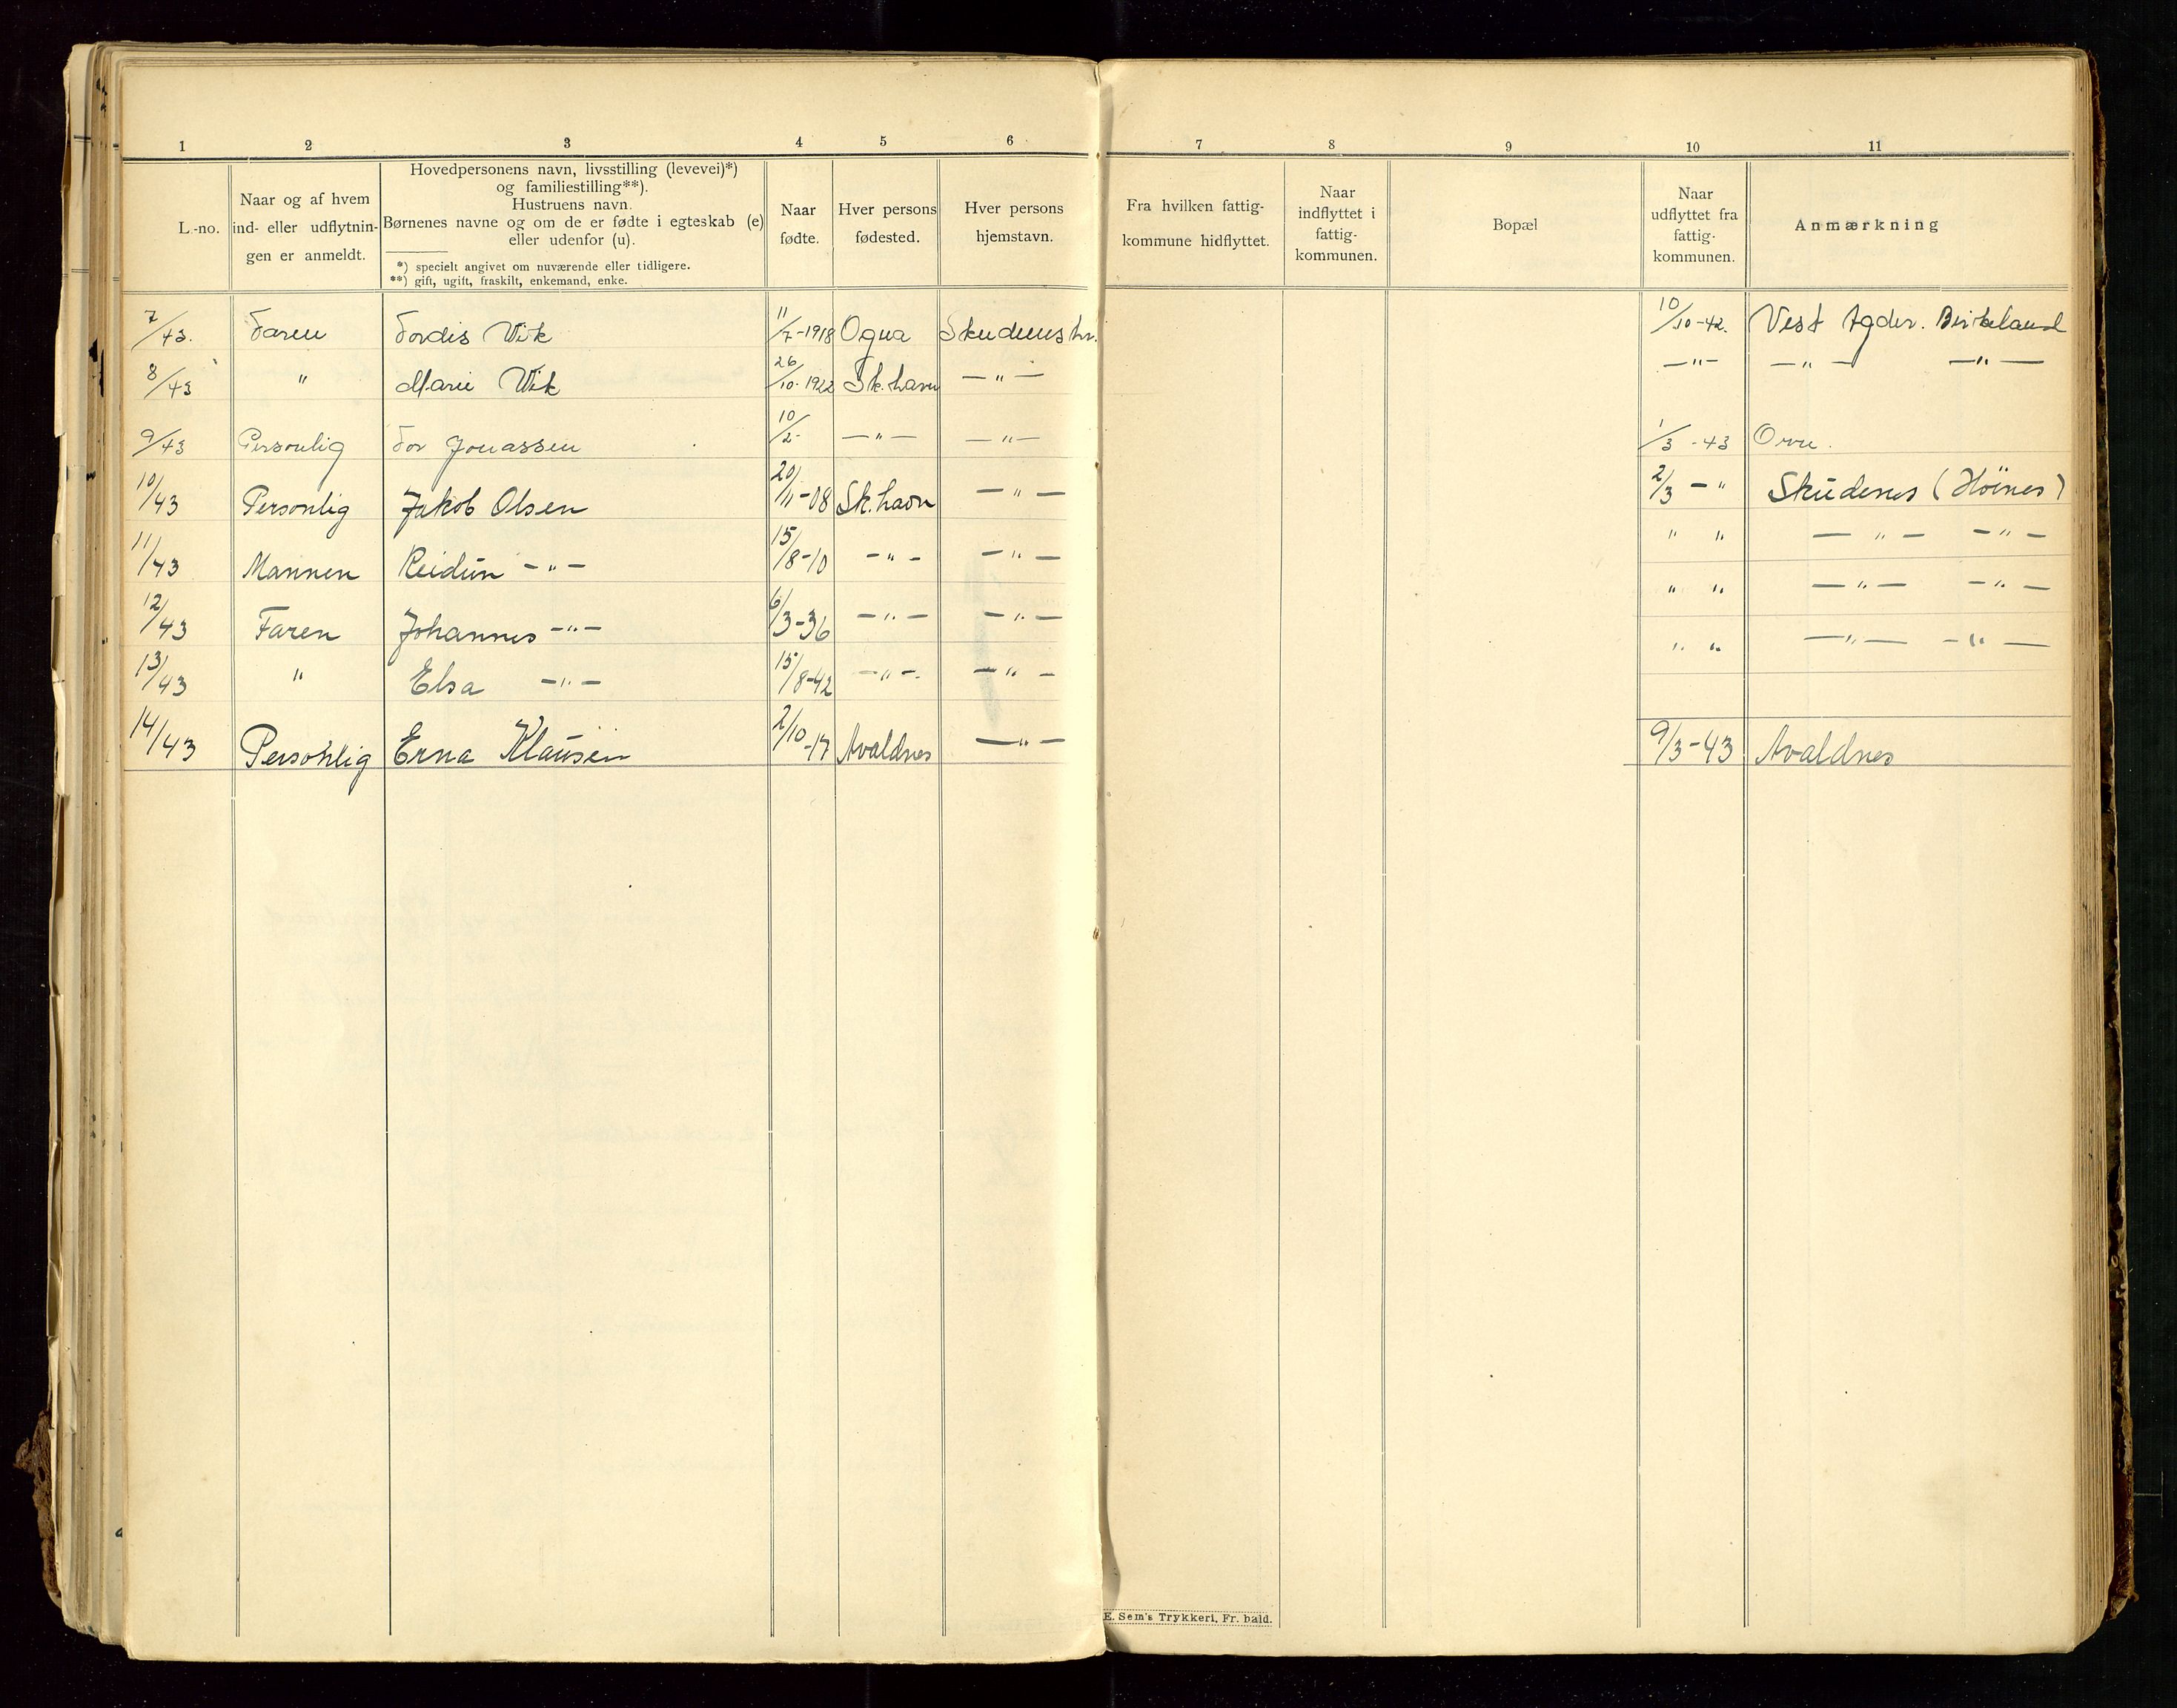 1 2 3 4 5 6 7 8 9 10 11
L.-no.
Naar og af hvem
ind- eller udflytnin-
gen er anmeldt.
Hovedpersonens navn, livsstilling (levevei)*)
og familiestilling**).
Hustruens navn.
Børnenes navne og om de er fødte i egteskab (e)
eller udenfor (u).
*) specielt angivet om nuværende eller tidligere.
**) gift, ugift, fraskilt, enkemand, enke.
Naar
fødte.
Hver persons
fødested.
Hver persons
hjemstavn.
Fra hvilken fattig-
kommune hidflyttet.
Naar
indflyttet i
fattig-
kommunen.
Bopæl
Naar
udflyttet fra
fattig-
kommunen.
Anmærkning
7/43. Faren Tordis Vik 11/7-1918 Ogna Skudenshv. 10/10-42. Vest Agder. Birkeland
8/43 " Marie Vik 26/10-1922 Sk.havn —"— —"— —"— —"—
9/43 Personlig Tor Jonassen 10/2- —"— —"— 1/3-43
10/43 Personlig Jakob Olsen 20/11-08 Sk.havn —"— 2/3 —" Skudenes (Høines)
11/43 Mannen Reidun —"— 15/8-10 —"— —"— " " —"— —"—
12/43 Faren Johannes —"— 6/3-36 —"— —"— " " —"— —"—
13/43 " Elsa —"— 15/8-42 —"— —"— " " —"— —"—
14/43 Personlig Erna Klausen 2/10-17 Avaldnes —"— 9/3-43 Avaldnes
E. Sem's Trykkeri, Fr. hald.